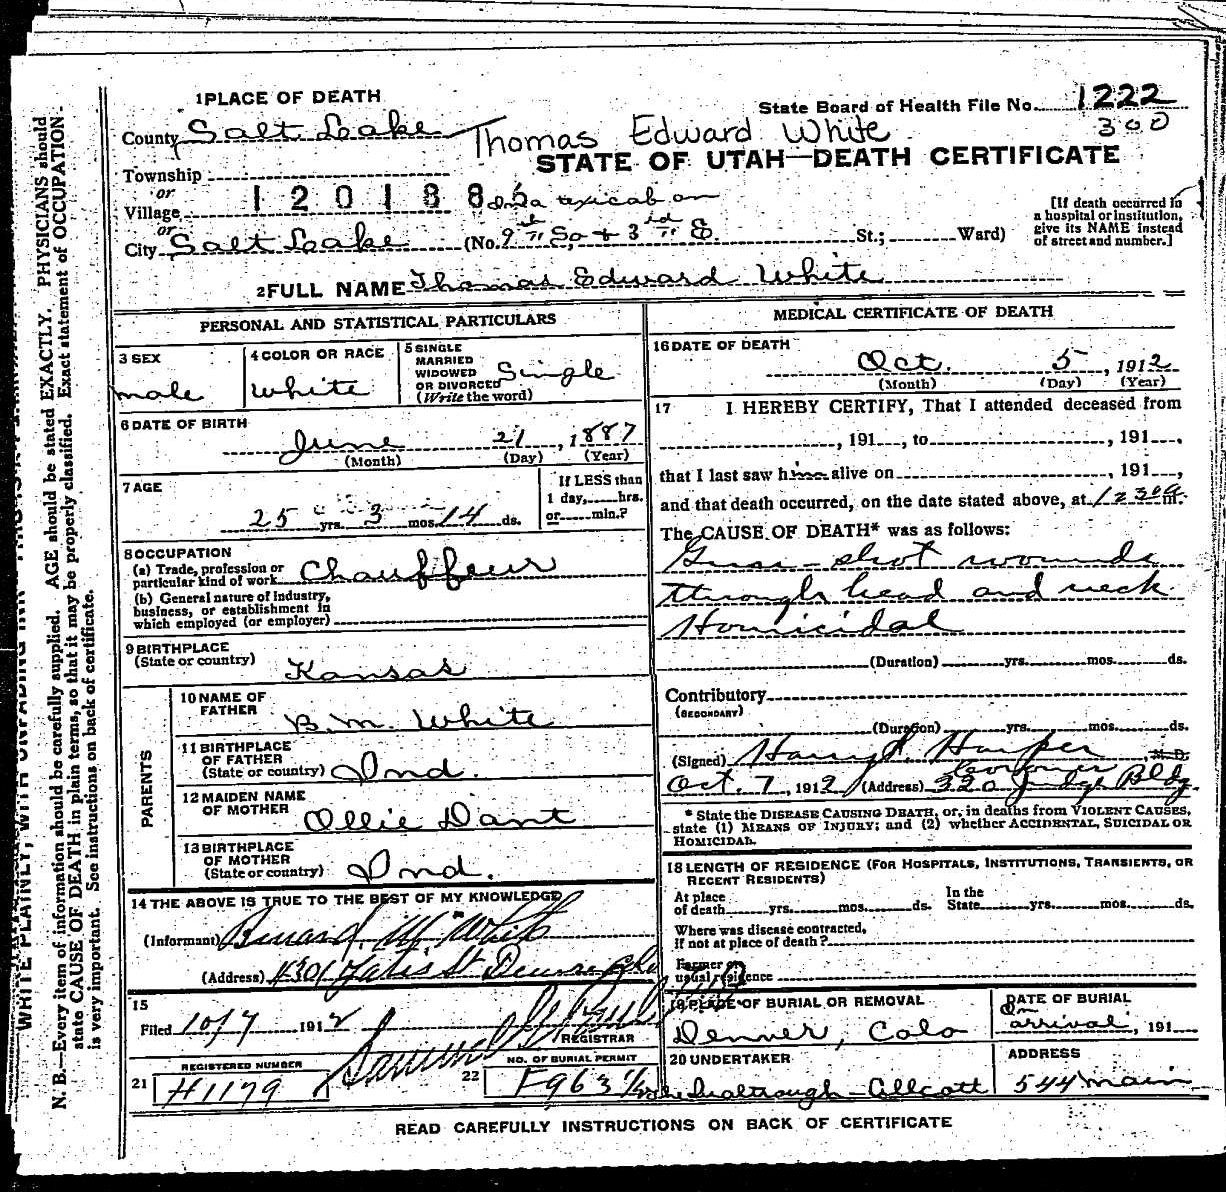 1 PLACE OF DEATH
State Board of Health File No. 1222
County Salt Lake
Thomas Edward White
300
STATE OF UTAH—DEATH CERTIFICATE
Township
or
1201886
Village
In a taxicab on
or
City Salt Lake (No. 9th So + 3rd E. St.; Ward)
[If death occurred in
a hospital or institution,
give its NAME instead
of street and number.]
2 FULL NAME Thomas Edward White
PERSONAL AND STATISTICAL PARTICULARS
3 SEX
male
4 COLOR OR RACE
White
5 SINGLE
MARRIED
WIDOWED
OR DIVORCED
(Write the word)
Single
6 DATE OF BIRTH
June 21, 1887
(Month) (Day) (Year)
7 AGE
25 yrs. 3 mos. 14 ds.
If LESS than
1 day, hrs.
or min.?
8 OCCUPATION
(a) Trade, profession or
particular kind of work Chauffeur
(b) General nature of industry,
business, or establishment in
which employed (or employer)
9 BIRTHPLACE
(State or country)
Kansas
PARENTS
10 NAME OF
FATHER
B.M. White
11 BIRTHPLACE
OF FATHER
(State or country) Ind.
12 MAIDEN NAME
OF MOTHER
Ollie Dant
13 BIRTHPLACE
OF MOTHER
(State or country) Ind.
14 THE ABOVE IS TRUE TO THE BEST OF MY KNOWLEDGE
(Informant) M. White
(Address) St Denver Colo
15
Filed 10/7 1912
REGISTRAR
REGISTERED NUMBER
21 H1179
NO. OF BURIAL PERMIT
22 F963
MEDICAL CERTIFICATE OF DEATH
16 DATE OF DEATH
Oct. 5, 1912
(Month) (Day) (Year)
17 I HEREBY CERTIFY, That I attended deceased from
, 191 , to , 191 .
that I last saw him alive on , 191 ,
and that death occurred, on the date stated above, at 1230 a m.
The CAUSE OF DEATH* was as follows:
Gun-shot wounds
through head and neck
Homicidal
(Duration) yrs. mos. ds.
Contributory
(SECONDARY)
(Duration) yrs. mos. ds.
(Signed) Harry Harper M. D.
Coroner
Oct. 7, 1912 (Address) 320 Judge Bldg.
* State the DISEASE CAUSING DEATH, or, in deaths from VIOLENT CAUSES,
state (1) MEANS OF INJURY; and (2) whether ACCIDENTAL, SUICIDAL OR
HOMICIDAL.
18 LENGTH OF RESIDENCE (FOR HOSPITALS, INSTITUTIONS, TRANSIENTS, OR
RECENT RESIDENTS)
At place
of death yrs. mos. ds.
In the
State yrs. mos. ds.
Where was disease contracted,
If not at place of death?
Former or
usual residence
19 PLACE OF BURIAL OR REMOVAL
Denver, Colo
DATE OF BURIAL
On
arrival, 191
20 UNDERTAKER
ADDRESS
544 Main
READ CAREFULLY INSTRUCTIONS ON BACK OF CERTIFICATE
WRITE PLAINLY, WITH UNFADING INK
N. B.—Every item of information should be carefully supplied. AGE should be stated EXACTLY. PHYSICIANS should
state CAUSE OF DEATH in plain terms, so that it may be properly classified. Exact statement of OCCUPATION
is very important. See instructions on back of certificate.